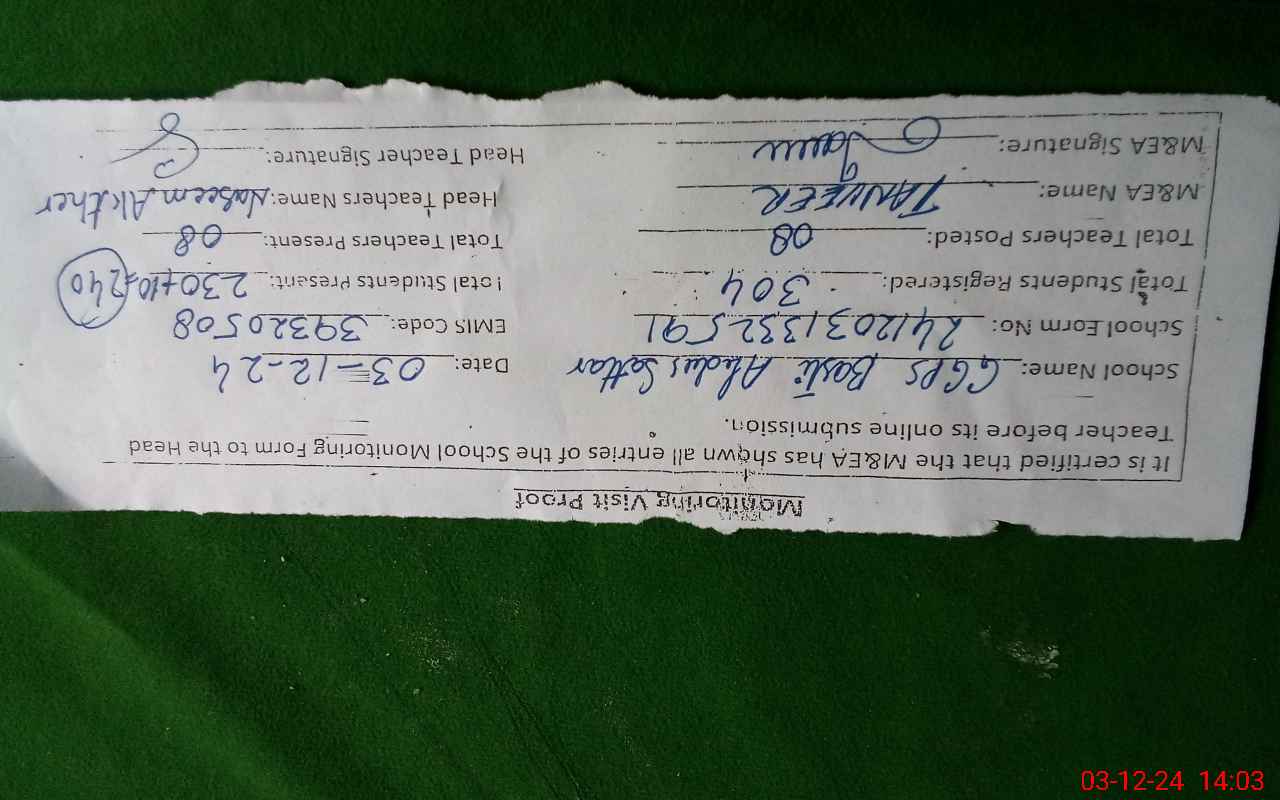 Monitoring Visit Proof
It is certified that the M&EA has shown all entries of the School Monitoring Form to the Head
Teacher before its online submission.
School Name: GGPS Basti Abdus Sattar Date: 03-12-24
School Form No: 2412031332591 EMIS Code: 39320508
Total Students Registered: 304 Total Students Present: 230+10=240
Total Teachers Posted: 08 Total Teachers Present: 08
M&EA Name: TANVEER Head Teachers Name: Naseem Akther
M&EA Signature: Head Teacher Signature:
03-12-24 14:03